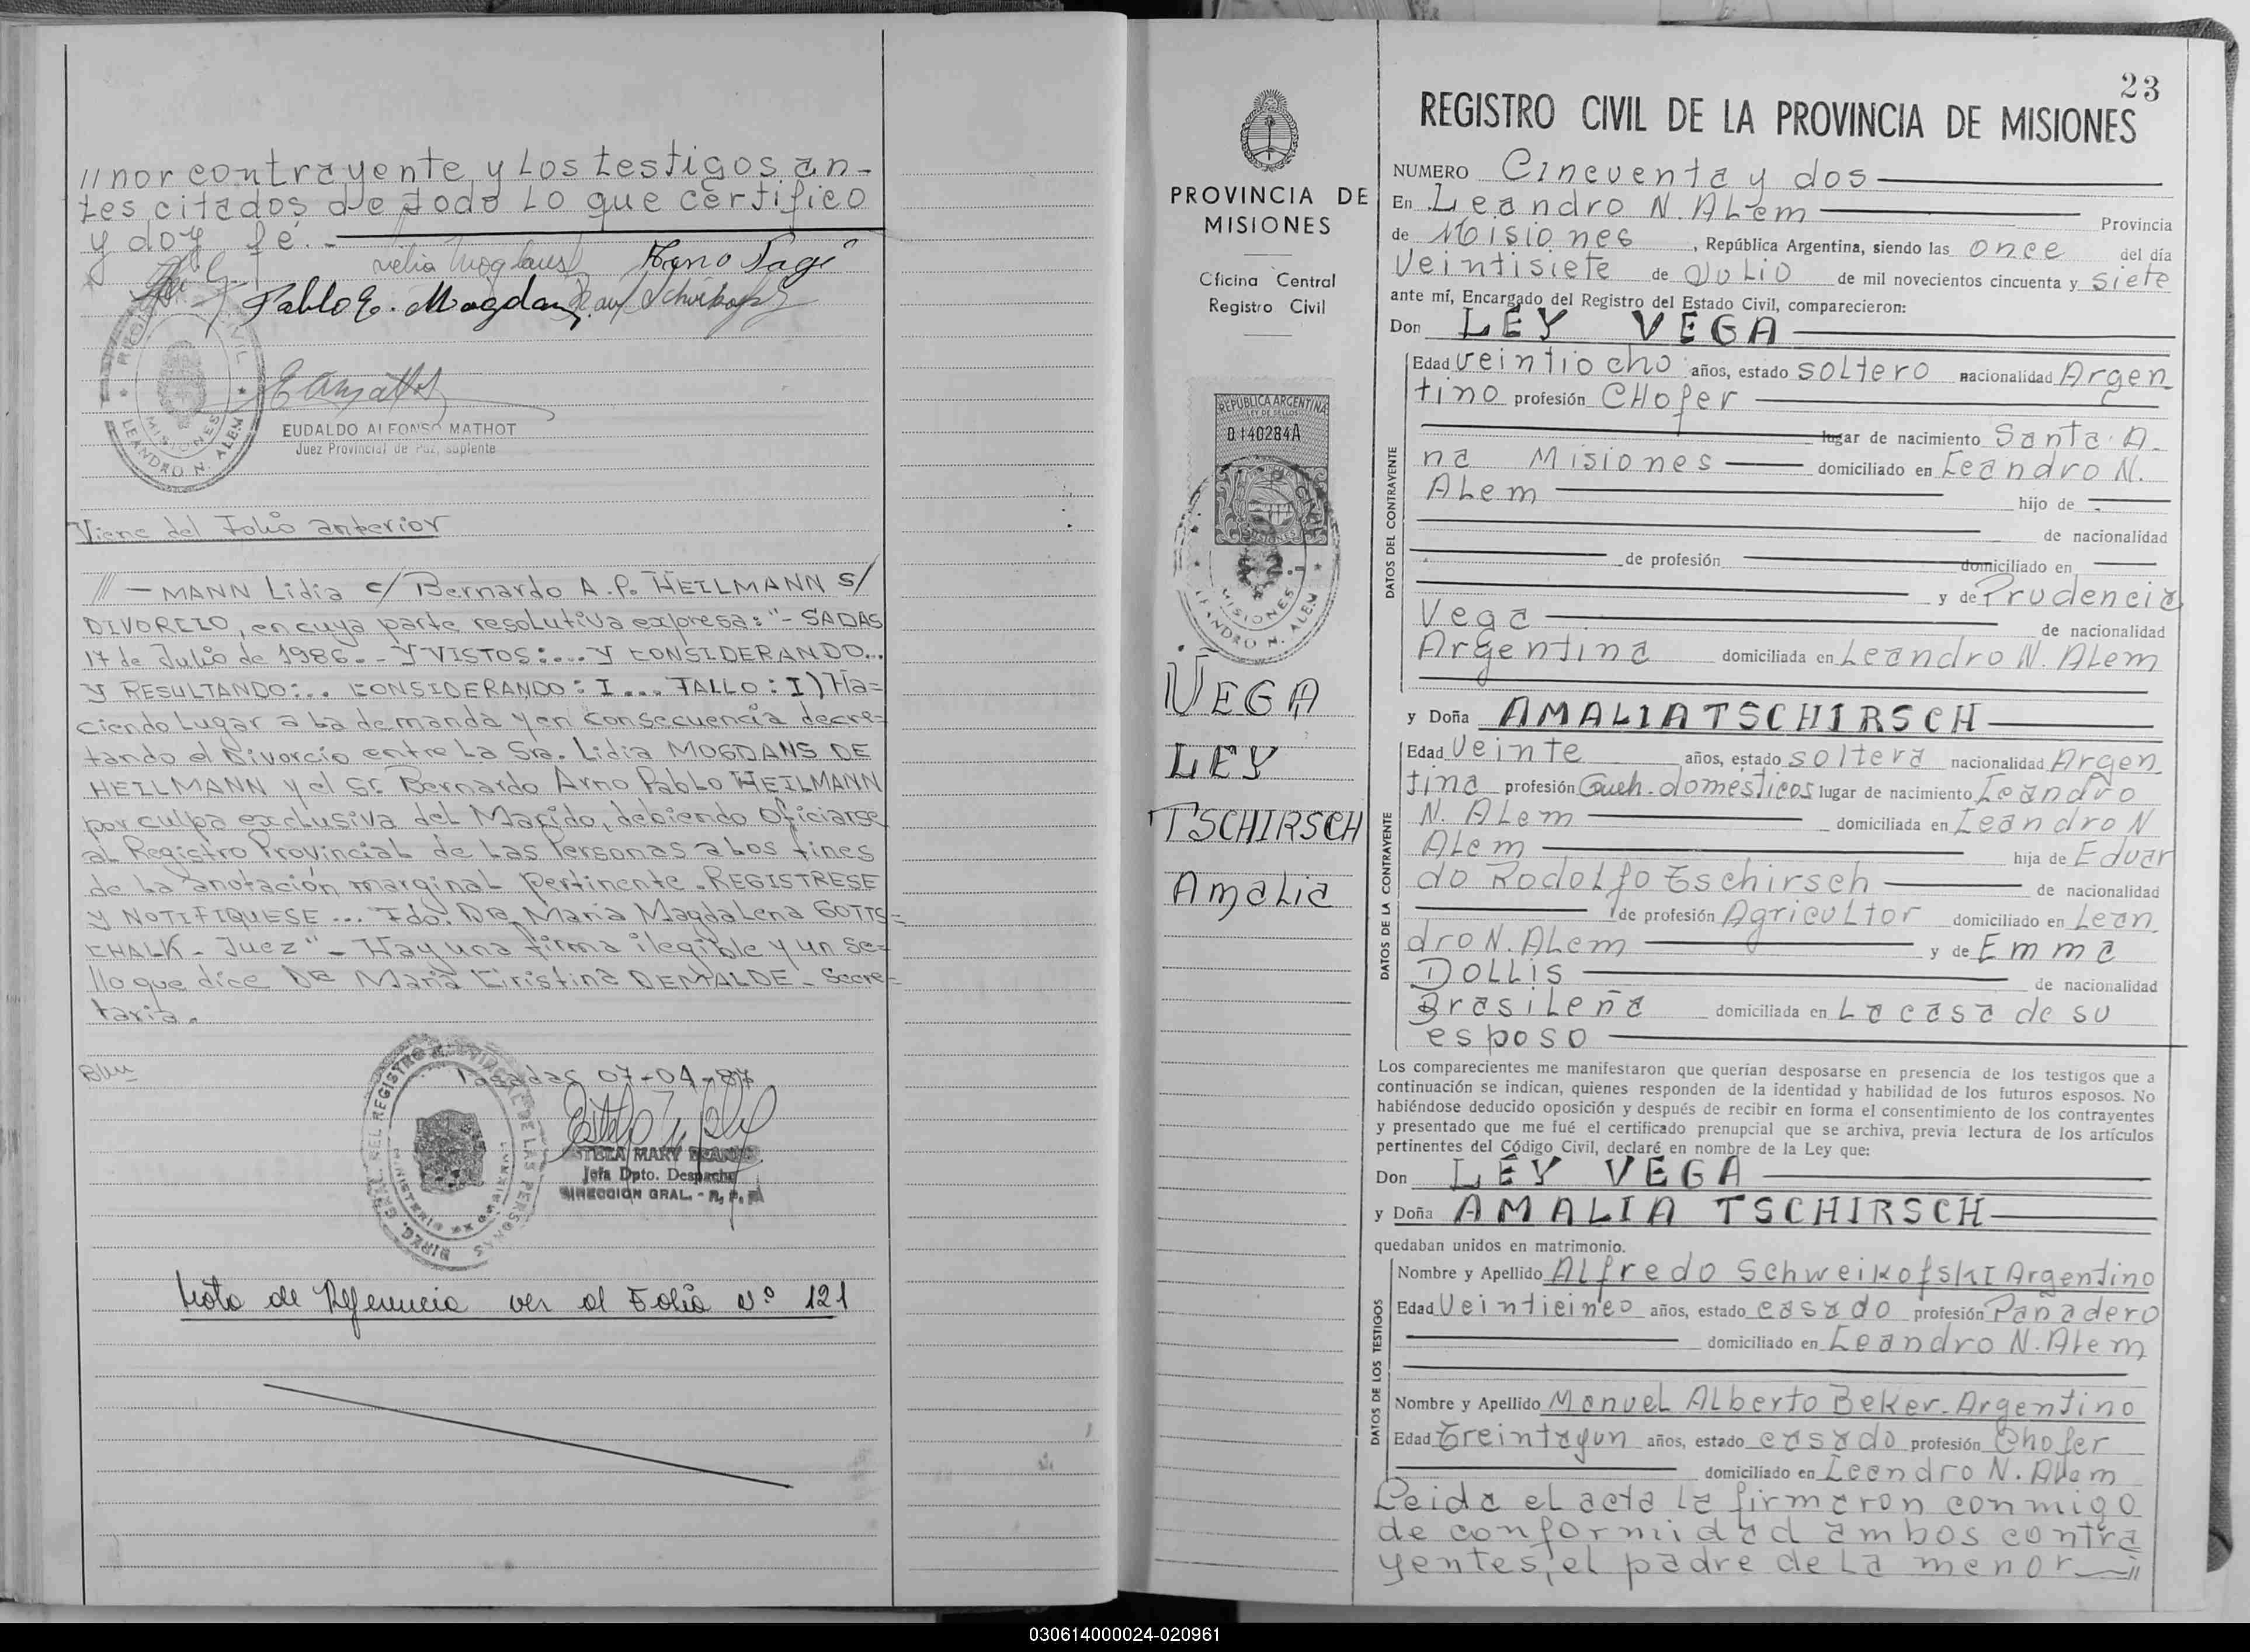 //nor contrayente y los testigos an-
tes citados de todo lo que certifico
y doy fé.-
Arno Pagi
Pablo E. Mogdan
EUDALDO ALFONSO MATHOT
Juez Provincial de Paz, suplente
REGISTRO CIVIL
MISIONES
LEANDRO N. ALEM
Viene del Folio anterior
/// - MANN Lidia c/ Bernardo A.P. HEILMANN s/
DIVORCIO, en cuya parte resolutiva expresa: "- SADAS
17 de Julio de 1986.- Y VISTOS:... Y CONSIDERANDO...
Y RESULTANDO:.. CONSIDERANDO: I... FALLO: I) Ha=
ciendo Lugar a la demanda y en consecuencia decre=
tando el Divorcio entre La Sra. Lidia MOGDANS DE
HEILMANN y el Sr. Bernardo Arno Pablo HEILMANN
por culpa exclusiva del Marido, debiendo Oficiarse
al Registro Provincial de Las Personas a Los fines
de La anotación marginal pertinente. REGISTRESE
Y NOTIFIQUESE... Fdo. DRA Maria Magdalena GOTTS=
CHALK - Juez" - Hay una firma ilegible y un se=
llo que dice DRA Maria Cristina DEMALDE - Secre=
taria.
Posadas 07-04-87
Jefa Dpto. Despacho
DIRECCION GRAL. - R. P. P.
Nota de Referencia ver al Folio Nº 121
23
PROVINCIA DE
MISIONES
Oficina Central
Registro Civil
REPUBLICA ARGENTINA
LEY DE SELLOS
0140284A
MISIONES
LEANDRO N. ALEM
VEGA
LEY
TSCHIRSCH
Amalia
REGISTRO CIVIL DE LA PROVINCIA DE MISIONES
NUMERO Cincuenta y dos
En Leandro N. Alem Provincia
de Misiones, República Argentina, siendo las once del día
Veintisiete de Julio de mil novecientos cincuenta y siete
ante mí, Encargado del Registro del Estado Civil, comparecieron:
Don LÉY VEGA
DATOS DEL CONTRAYENTE
Edad veintiocho años, estado soltero nacionalidad Argen
tino profesión CHofer
lugar de nacimiento Santa A-
na Misiones domiciliado en Leandro N.
Alem hijo de
de nacionalidad
de profesión domiciliado en
y de Prudencia
Vega de nacionalidad
Argentina domiciliada en Leandro N. Alem
y Doña AMALIA TSCHIRSCH
DATOS DE LA CONTRAYENTE
Edad Veinte años, estado soltera nacionalidad Argen
tina profesión Queh. domésticos lugar de nacimiento Leandro
N. Alem domiciliada en Leandro N
Alem hija de Eduar
do Rodolfo Tschirsch de nacionalidad
de profesión Agricultor domiciliado en Lean
dro N. Alem y de Emma
DOLLIS de nacionalidad
Brasileña domiciliada en La casa de su
esposo
Los comparecientes me manifestaron que querían desposarse en presencia de los testigos que a
continuación se indican, quienes responden de la identidad y habilidad de los futuros esposos. No
habiéndose deducido oposición y después de recibir en forma el consentimiento de los contrayentes
y presentado que me fué el certificado prenupcial que se archiva, previa lectura de los artículos
pertinentes del Código Civil, declaré en nombre de la Ley que:
Don LÉY VEGA
y Doña AMALIA TSCHIRSCH
quedaban unidos en matrimonio.
DATOS DE LOS TESTIGOS
Nombre y Apellido Alfredo Schweikofski Argentino
Edad Veinticinco años, estado casado profesión Panadero
domiciliado en Leandro N. Alem
Nombre y Apellido Manuel Alberto Beker-Argentino
Edad Treintayun años, estado casado profesión Chofer
domiciliado en Leandro N. Alem
Leida el acta la firmaron conmigo
de conformidad ambos contra
yentes, el padre de la menor //
030614000024-020961